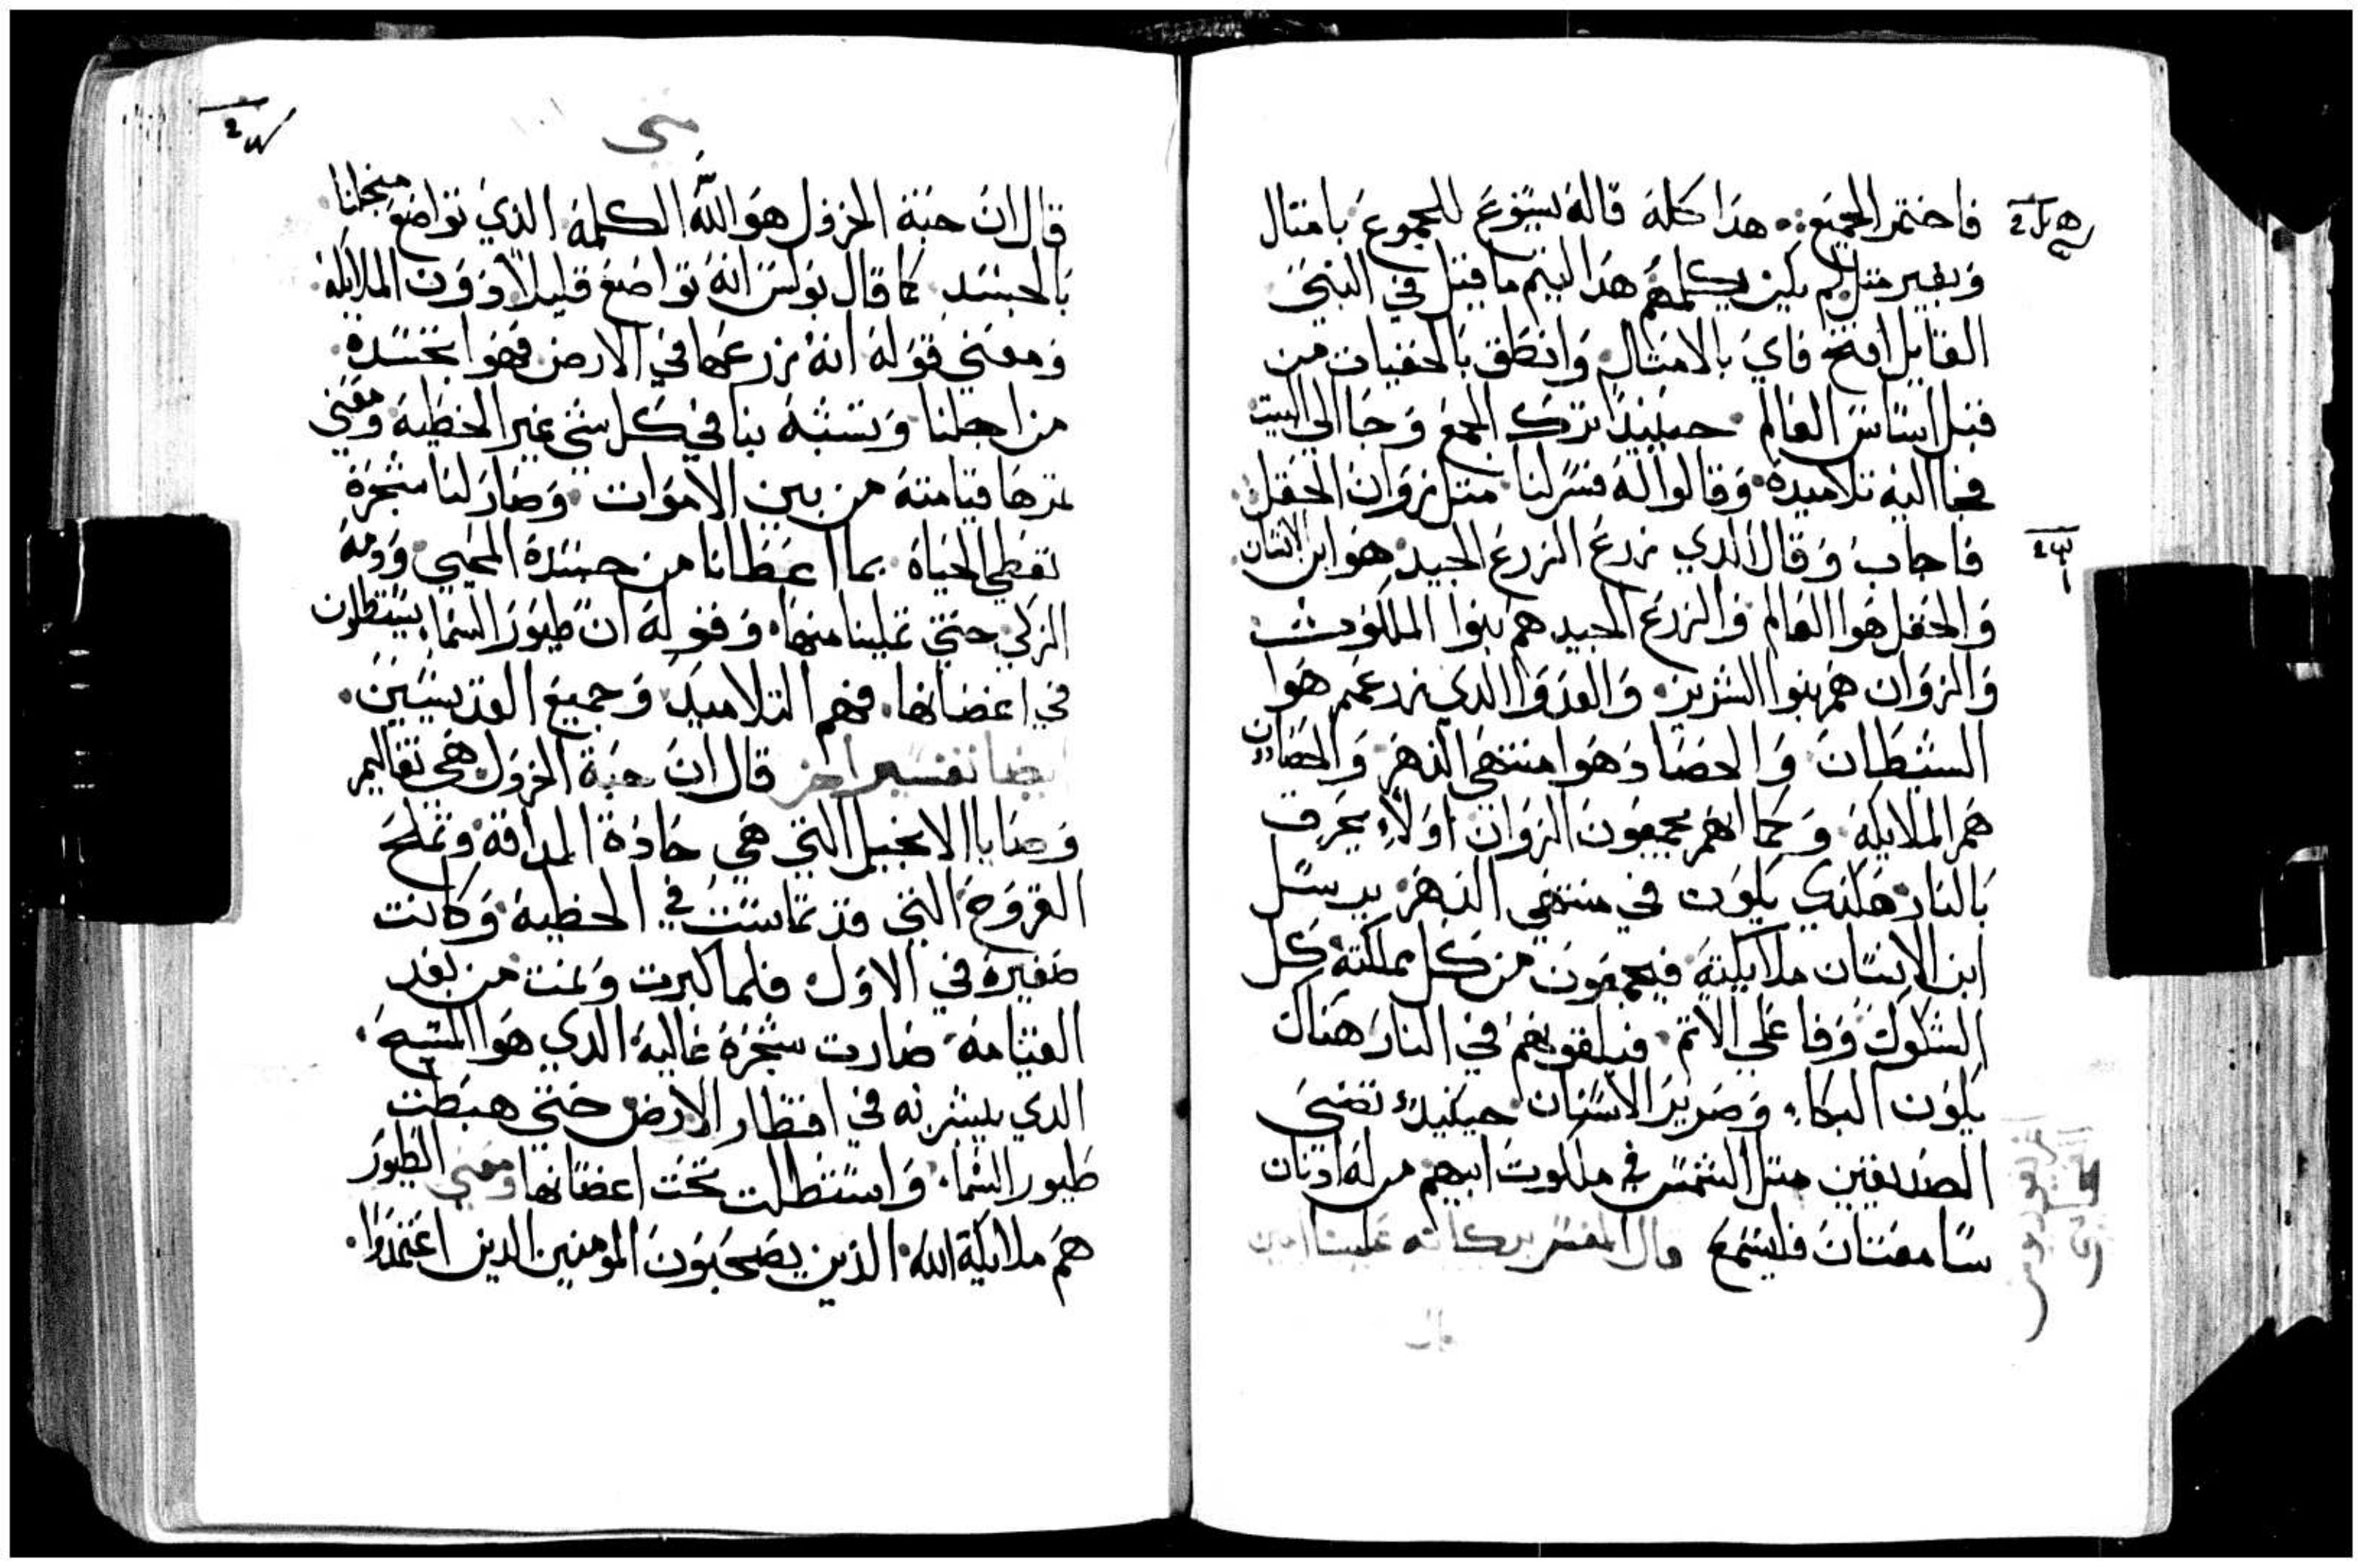 فاختمر الجميع هذا كله قاله يسوع للجموع بامتال
وبغير متل لم يكن يكلمهم هذا ليتم ما قيل في النبي
القايل افتح فاي بالامتال وانطق بالخفيات من
قبل اساس العالم حينيذ ترك الجمع وجا الي البيت
فجا اليه تلاميده وقالوا له فسر لنا متل زوان الحقل
فاجاب وقال الدي زرع الزرع الجيد هو ابن الانسان
والحقل هوا العالم والزرع الجيد هم بنوا الملكوت
والزوان هم بنوا الشرير والعدوا الدي زرعهم هوا
الشيطان والحصاد هوا منتهي الدهر والحصادون
هم الملايكة وكما انهم يجمعون الزوان اولا يحرق
بالنار هكدي يكون في منتهي الدهر يرسل
ابن الانسان ملايكته فيجمعون من كل مملكته كل
الشكوك وفاعلي الاتم فيلقونهم في النار هناك
يكون البكاء وصرير الاسنان حينيد تضي
الصديقين متل الشمس في ملكوت ابيهم من له ادنان
سامعتان فليستمع قال المفسر بركاته علينا امين
قال
متي
قال ان حبة الخردل هو الله الكلمة الذي تواضع منجلنا
بالجسد كما قال بولس انه تواضع قليلا دون الملايكة
ومعني قوله انه زرعها في الارض فهوا تجسده
من اجلنا وتشبه بنا في كل شي غير الخطية ومعني
قيامته من بين الاموات وصار لنا شجرة
تعطي الحياة بما اعطانا من جسده المحيي ودمه
الزكي حتي تملينا منها وقوله ان طيور السما يستظلون
في اغصانها فهم التلاميد وجميع القديسين
ايضا تفسير اخر قال ان حبة الخردل هي تعاليم
وصايا الانجيل التي هي حادة المداقة وتملح
القروح التي قد في الخطية وكانت
صغيرة في الاول فلما كبرت ونمت من بعد
القيامة صارت شجرة عالية الدي هوا المسيح
الدي بشر به في اقطار الارض حتي هبطت
طيور السما واستظلت تحت اغصانها ومعني الطيور
هم ملايكة الله الذين يصحبون المومنين الدين اعتمدوا